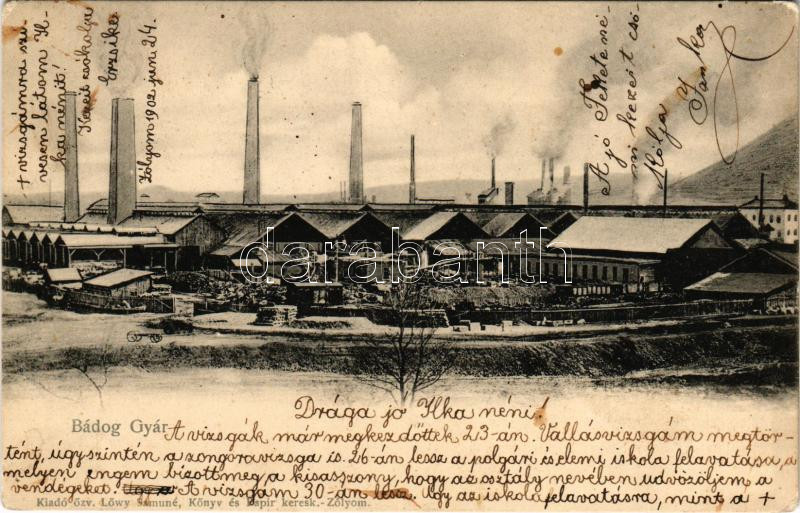 + vizsgámra szi-
vesen látom Il-
ka nénit!
Kezeit csókolja
Erzsike
Zólyom 1902 jun 24.
A jó Feketené-
ni kezeit csó-
kolja Janka
darabanth
Drága jó Ilka néni!
Bádog Gyár
A vizsgák már megkezdőttek 23-án. Vallásvizsgám megtör-
tént, úgyszintén a zongoravizsga is. 26-án lessz a polgári és elemi iskola felavatása, a
melyen engem bizott meg a kisasszony, hogy az osztály nevében üdvözöljem a
vendégeket. A vizsgám 30-án lessz. Ugy az iskola felavatásra, mint a +
Kiadó özv. Löwy Samuné, Könyv és Papir keresk.-Zólyom.